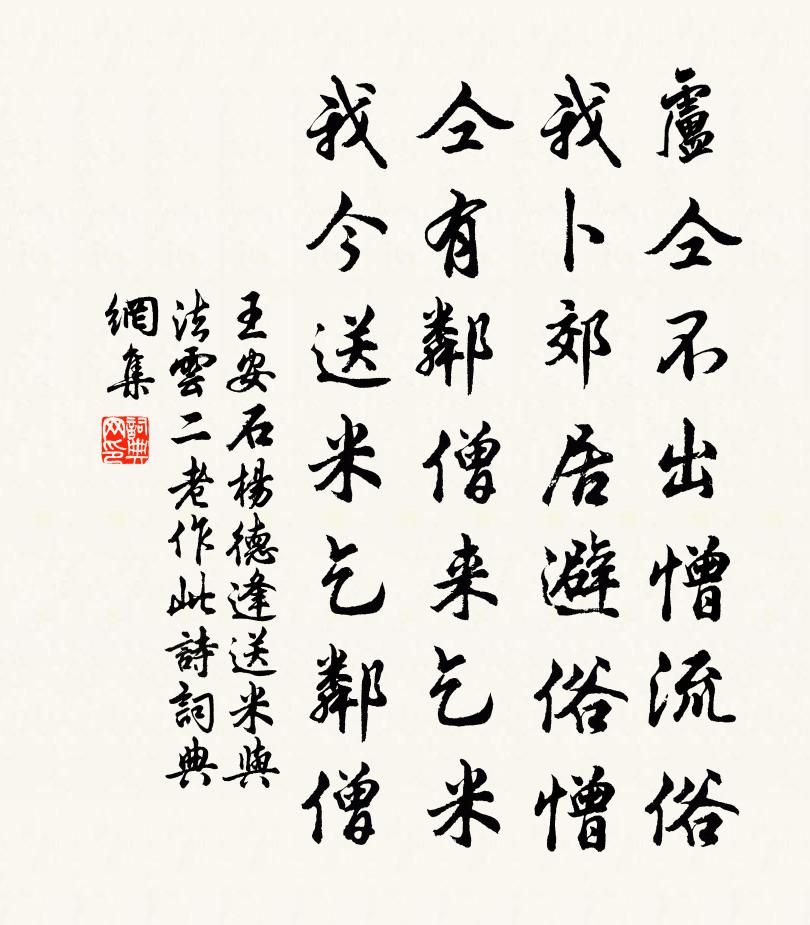 盧仝不出憎流俗
我卜郊居避俗憎
仝有鄰僧来乞米
我今送米乞鄰僧
王安石楊德逢送米與
法雲二老作此詩詞典
網集
詞典網印